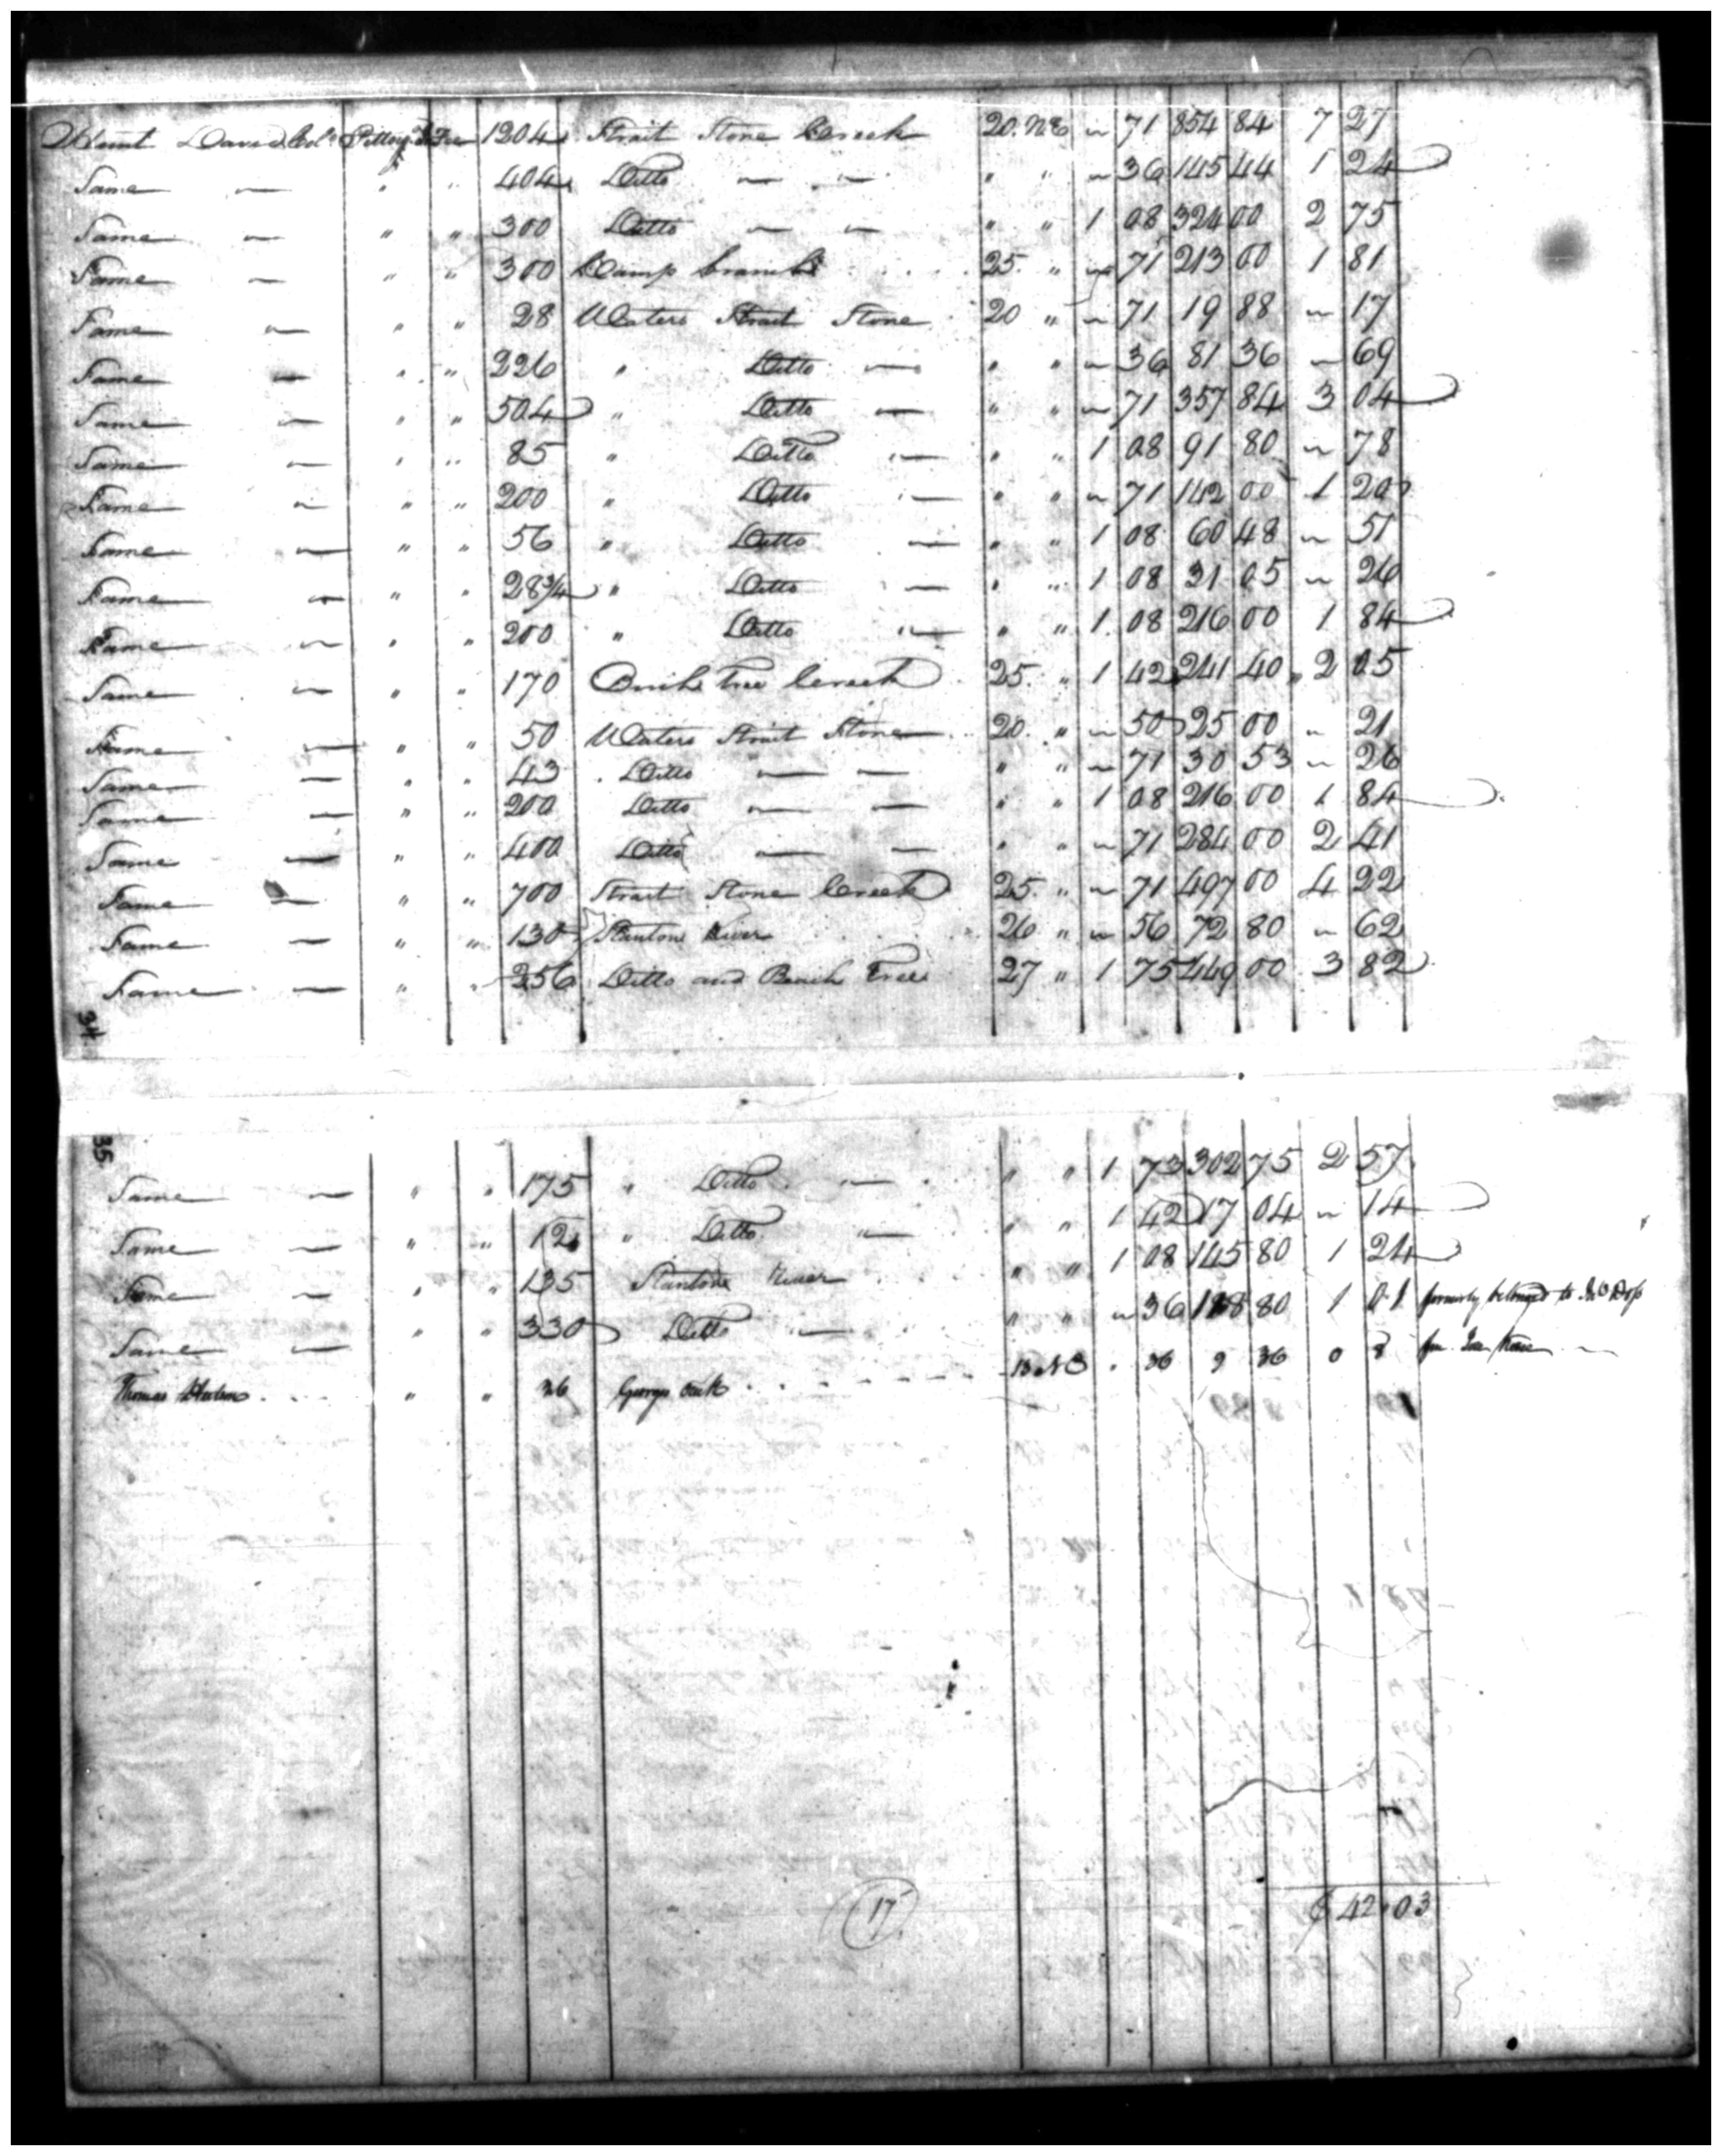 Hunt David Colo Pittsya Fee 1204 Strait Stone Creek 20. NE " 71 854 84 7 27
Same — " " 404 Ditto — — " " " 36 145 44 1 24
Same — " " 300 Ditto — — " " 1 08 324 00 2 75
Same — " " 300 Camp branch 25. " " 71 213 00 1 81
Same — " " 28 Waters Strait Stone 20 " " 71 19 88 " 17
Same — " " 226 " Ditto — " " " 36 81 36 " 69
Same — " " 504 " Ditto — " " " 71 357 84 3 04
Same — " " 85 " Ditto — " " 1 08 91 80 " 78
Same — " " 200 " Ditto — " " " 71 142 00 1 20
Same — " " 56 " Ditto — " " 1 08 60 48 " 51
Same — " " 28¾ " Ditto — " " 1 08 31 05 " 26
Same — " " 200 " Ditto — " " 1 08 216 00 1 84
Same — " " 170 Tree Creek 25. " 1 42 241 40 " 2 05
Same — " " 50 Waters Strait Stone 20. " " 50 25 00 " 21
Same — " " 43 Ditto — — " " " 71 30 53 " 26
Same — " " 200 Ditto — — " " 1 08 216 00 1 84
Same — " " 400 Ditto — — " " " 71 284 00 2 41
Same — " " 700 Strait Stone Creek 25. " " 71 497 00 4 22
Same — " " 130 Stantons River 26 " " 56 72 80 " 62
Same — " " 256 Ditto and Beach Tree 27 " 1 75 449 00 3 82
34
35
Same — " " 175 " Ditto — " " 1 73 302 75 2 57
Same — " " 12 " Ditto — " " 1 42 17 04 " 14
Same — " " 135 Stantons River " " 1 08 145 80 1 24
Same — " " 330 Ditto — " " " 36 118 80 1 01 formerly belonged to Jno
Thomas " " 26 Georges Creek 13 NE . 36 9 36 0 8
17
$ 42.03